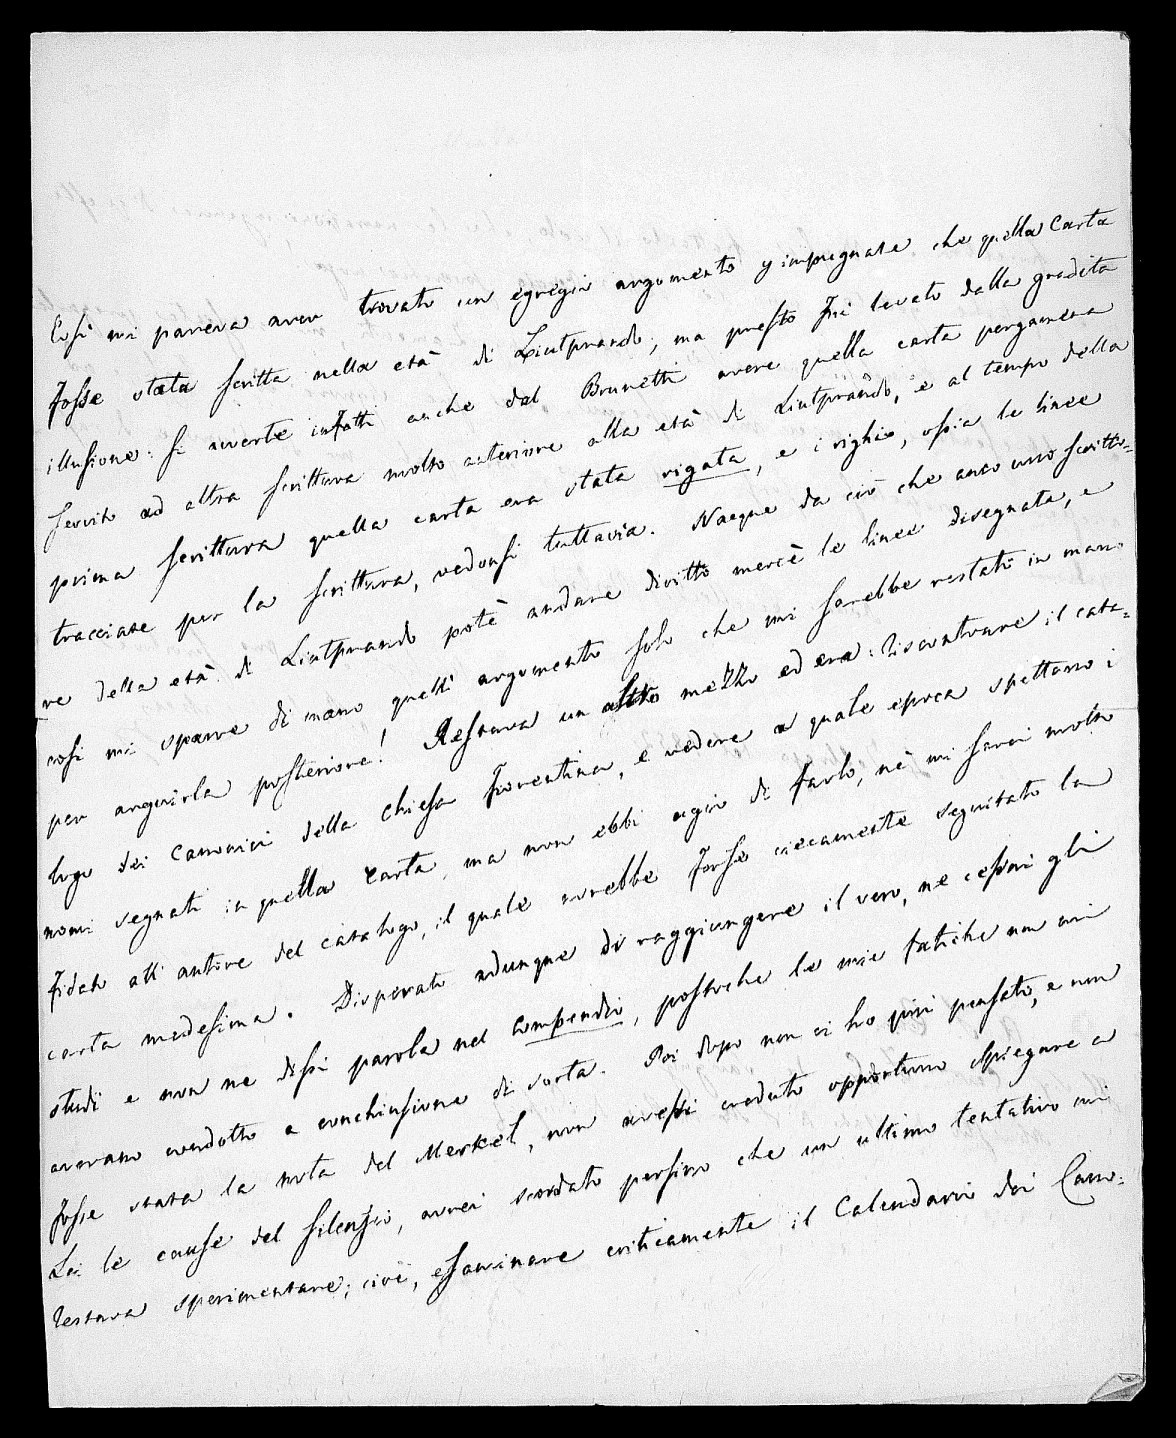 Così mi pareva aver trovato un egregio argomento p impugnare che quella Carta
fosse stata scritta nella età di Liutprando, ma presto fui levato dalla gradita
illusione: si avverte infatti anche dal Brunetti avere quella carta pergamena
servito ad altra scrittura molto anteriore alla età di Liutprando, e al tempo della
prima scrittura quella carta era stata rigata, e i righi, ossia le linee
tracciate per la scrittura, vedonsi tuttavia. Nacque da ciò che anco uno scritto=
re della età di Liutprando potè andare diritto mercè le linee disegnate, e
così mi sparve di mano quell' argomento solo che mi sarebbe restato in mano
per arguirla posteriore! Restava un altro mezzo ed era: riscontrare il cata=
logo dei Canonici della Chiesa Fiorentina, e vedere a quale epoca spettano i
nomi segnati in quella Carta, ma non ebbi agio di farlo, nè mi sarei molto
fidato all' autore del catalogo, il quale avrebbe forse ciecamente seguitato la
carta medesima. Disperato adunque di raggiungere il vero, ne cessai gli
studî e non ne dissi parola nel Compendio, postochè le mie fatiche non mi
avevano condotto a conchiusione di sorta. Poi dopo non ci ho più pensato, e non
fosse stata la nota del Merkel, non avessi creduto opportuno spiegare a
Lei le cause del silenzio, avrei scordato persino che un ultimo tentativo mi
restava sperimentare; cioè, esaminare criticamente il Calendario dei Cano=